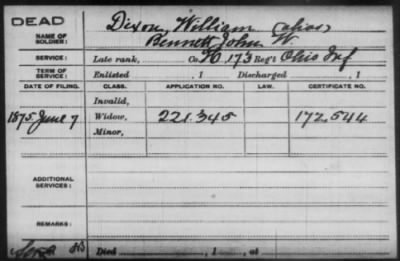 DEAD
NAME OF SOLDIER: Dixon, William (alias)
Bennett, John W.
SERVICE: Late rank, Co. H, 173 Reg't Ohio Inf
TERM OF SERVICE: Enlisted , 1 Discharged , 1
DATE OF FILING. CLASS. APPLICATION NO. LAW. CERTIFICATE NO.
Invalid,
1875, June 7 Widow, 221.345 172,544
Minor,
ADDITIONAL SERVICES:
REMARKS:
Died , 1 , at